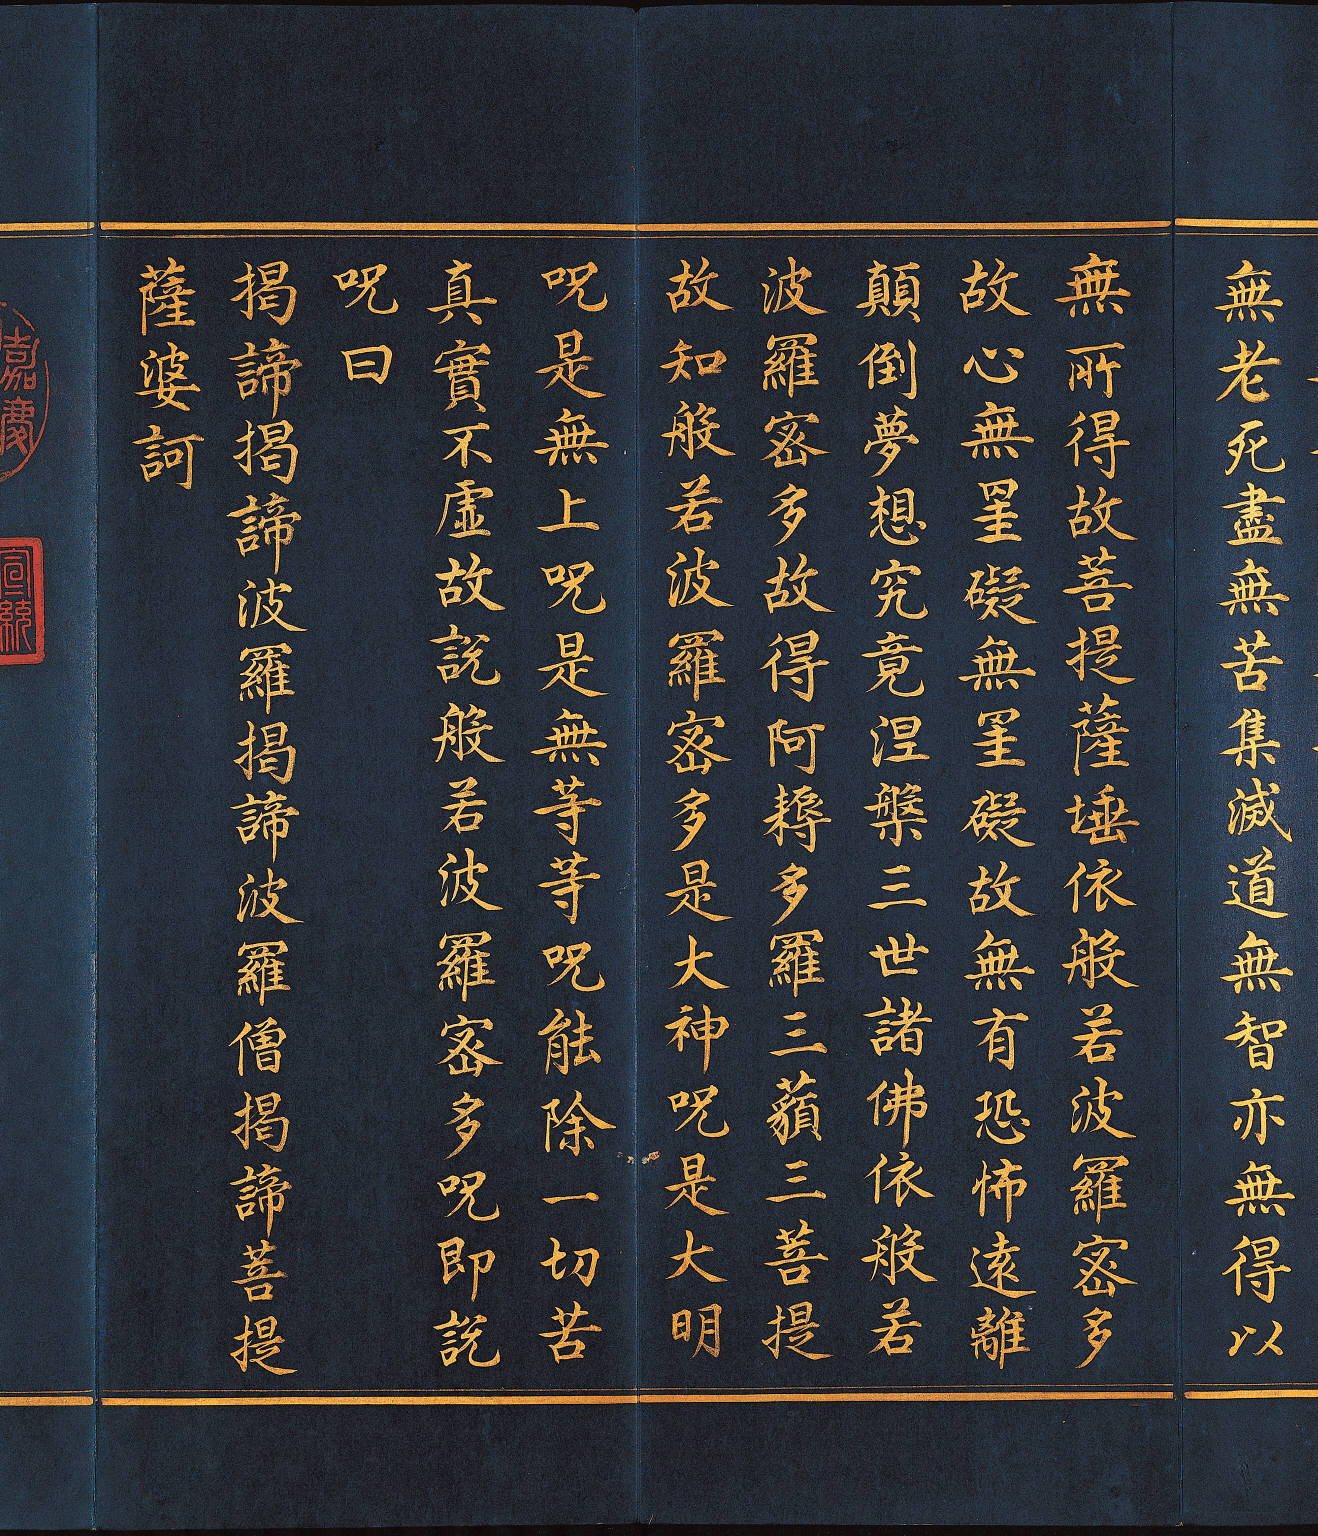 無老死盡無苦集滅道無智亦無得以
無所得故菩提薩埵依般若波羅蜜多
故心無罣礙無罣礙故無有恐怖遠離
顛倒夢想究竟涅槃三世諸佛依般若
波羅蜜多故得阿耨多羅三藐三菩提
故知般若波羅蜜多是大神呪是大明
呪是無上呪是無等等呪能除一切苦
真實不虛故說般若波羅蜜多呪即說
呪曰
揭諦揭諦波羅揭諦波羅僧揭諦菩提
薩婆訶
嘉慶
宣統